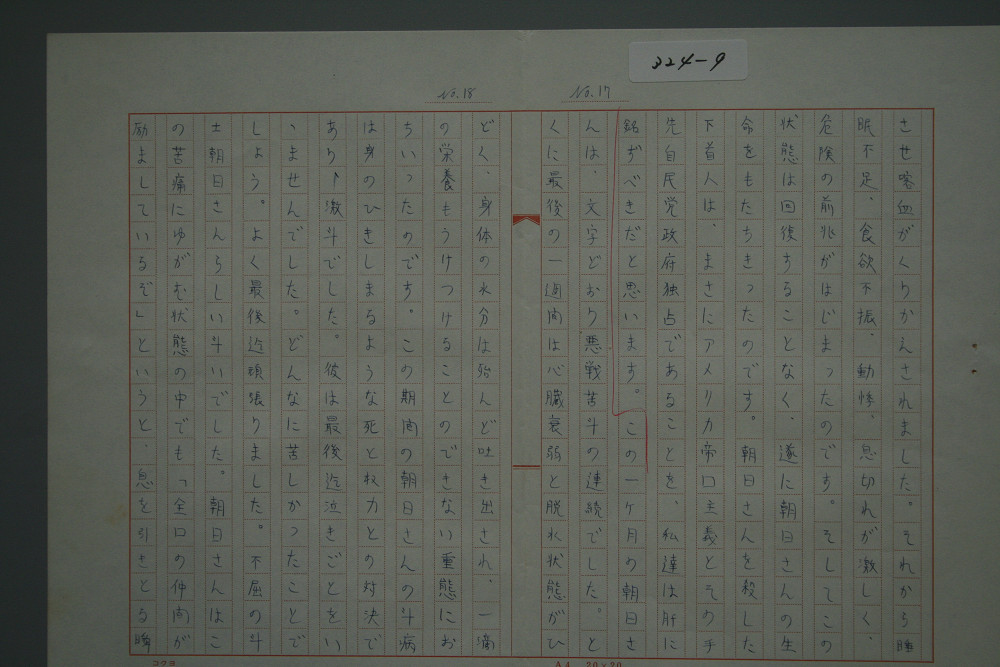 324-9
No.17
させ喀血がくりかえされました。それから睡
眠不足、食欲不振、動悸、息切れが激しく、
危険の前兆がはじまったのです。そしてこの
状態は回復することなく、遂に朝日さんの生
命をもたちきったのです。朝日さんを殺した
下首人は、まさにアメリカ帝口主義とその手
先自民党政府独占であることを、私達は肝に
銘ずべきだと思います。この一ヶ月の朝日さ
んは、文字どおり悪戦苦斗の連続でした。と
くに最後の一週间は心臓衰弱と脱水状態がひ
No.18
どく、身体の水分は殆んど吐き出され、一滴
の栄養もうけつけることのできない重態にお
ちいったのです。この期间の朝日さんの斗病
は身のひきしまるような死と权力との対決で
あり、激斗でした。彼は最後迄泣きごとをい
いませんでした。どんなに苦しかったことで
しょう。よく最後迄頑張りました。不屈の斗
士朝日さんらしい斗いでした。朝日さんはこ
の苦痛にゆがむ状態の中でも「全口の仲间が
励ましているぞ」というと、息を引きとる瞬
コクヨ
A4 20×20